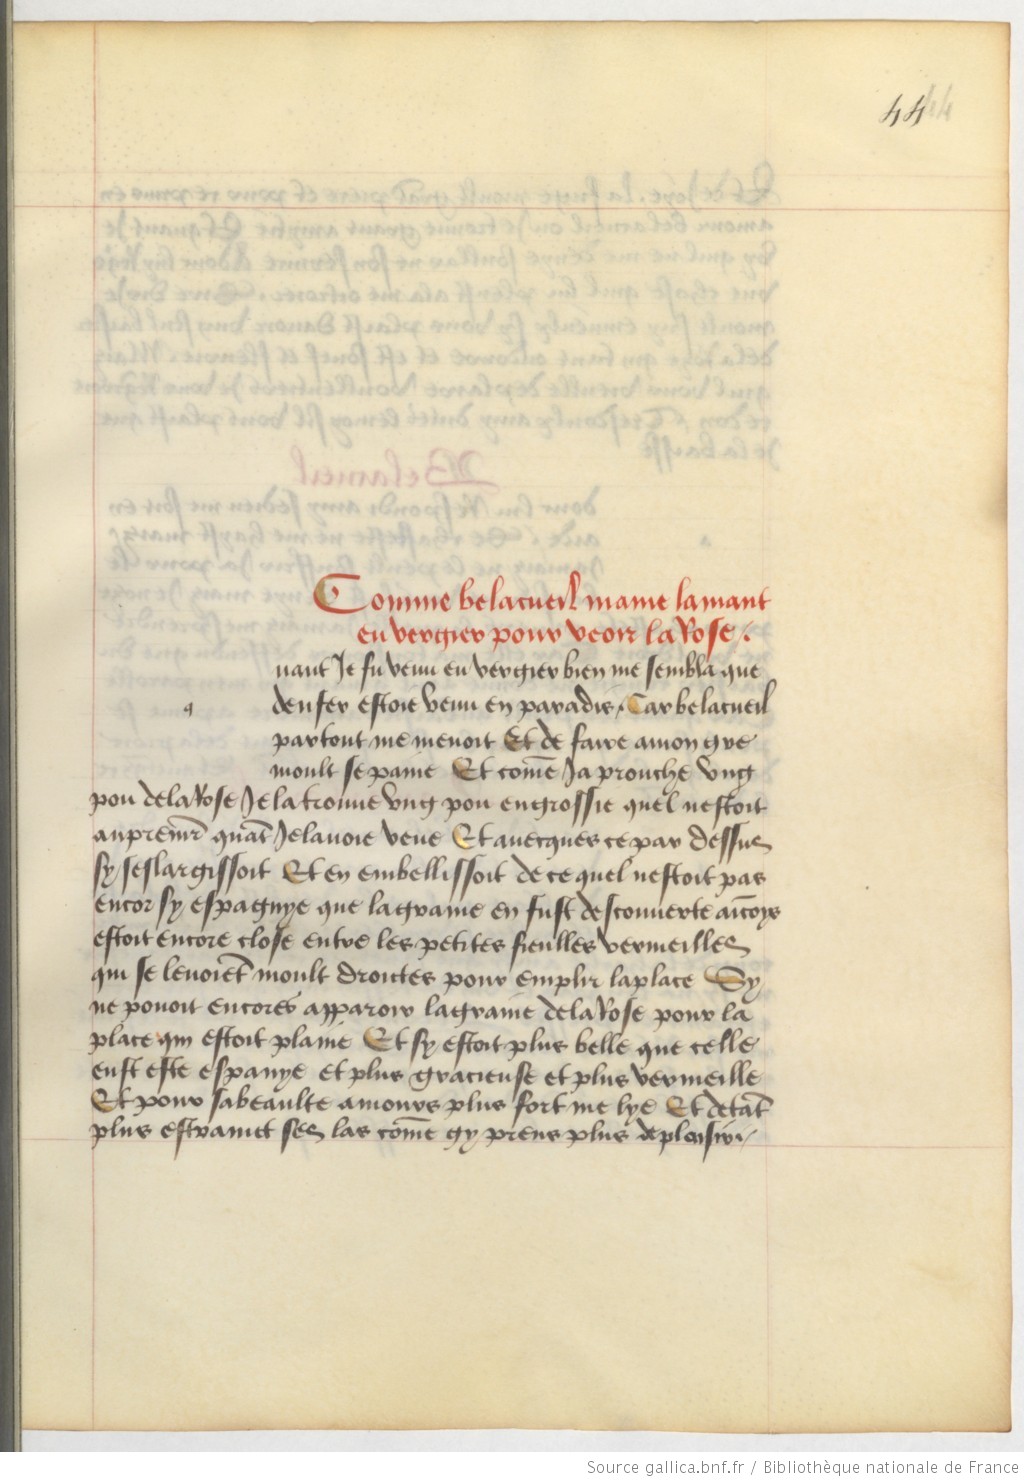 44
Comme belacueil maine lamant
en vergier pour veoir la Rose.
uant Je fu venu en vergier bien me sembla que
denfer estoie venu en paradis. Car belacueil
q
partout me menoit Et de faire a mon gre
moult se paine Et com̄e Ja prouche ung
pou de la Rose Je la trouue ung pou engrossie quel nestoit
au premi͞er quāt Je lauoie veue Et auecques ce par dessus
sy seslargissoit Et en embellissoit de ce quel nestoit pas
encor sy espagnye que la graine en fust descouuerte aīcoys
estoit encore close entre les petites fieulles vermeilles
qui se leuoiēt moult droictes pour emplir la place Sy
ne pouoit encores apparoir la graine de la Rose pour la
place qui estoit plaine Et sy estoit plus belle que celle
eust este espanye et plus gracieuse et plus vermeille
Et pour sa beaulte amours plus fort me lye Et de tāt
plus estraint ses las com̄e gy prens plus de plaisir.
Source gallica.bnf.fr / Bibliothèque nationale de France